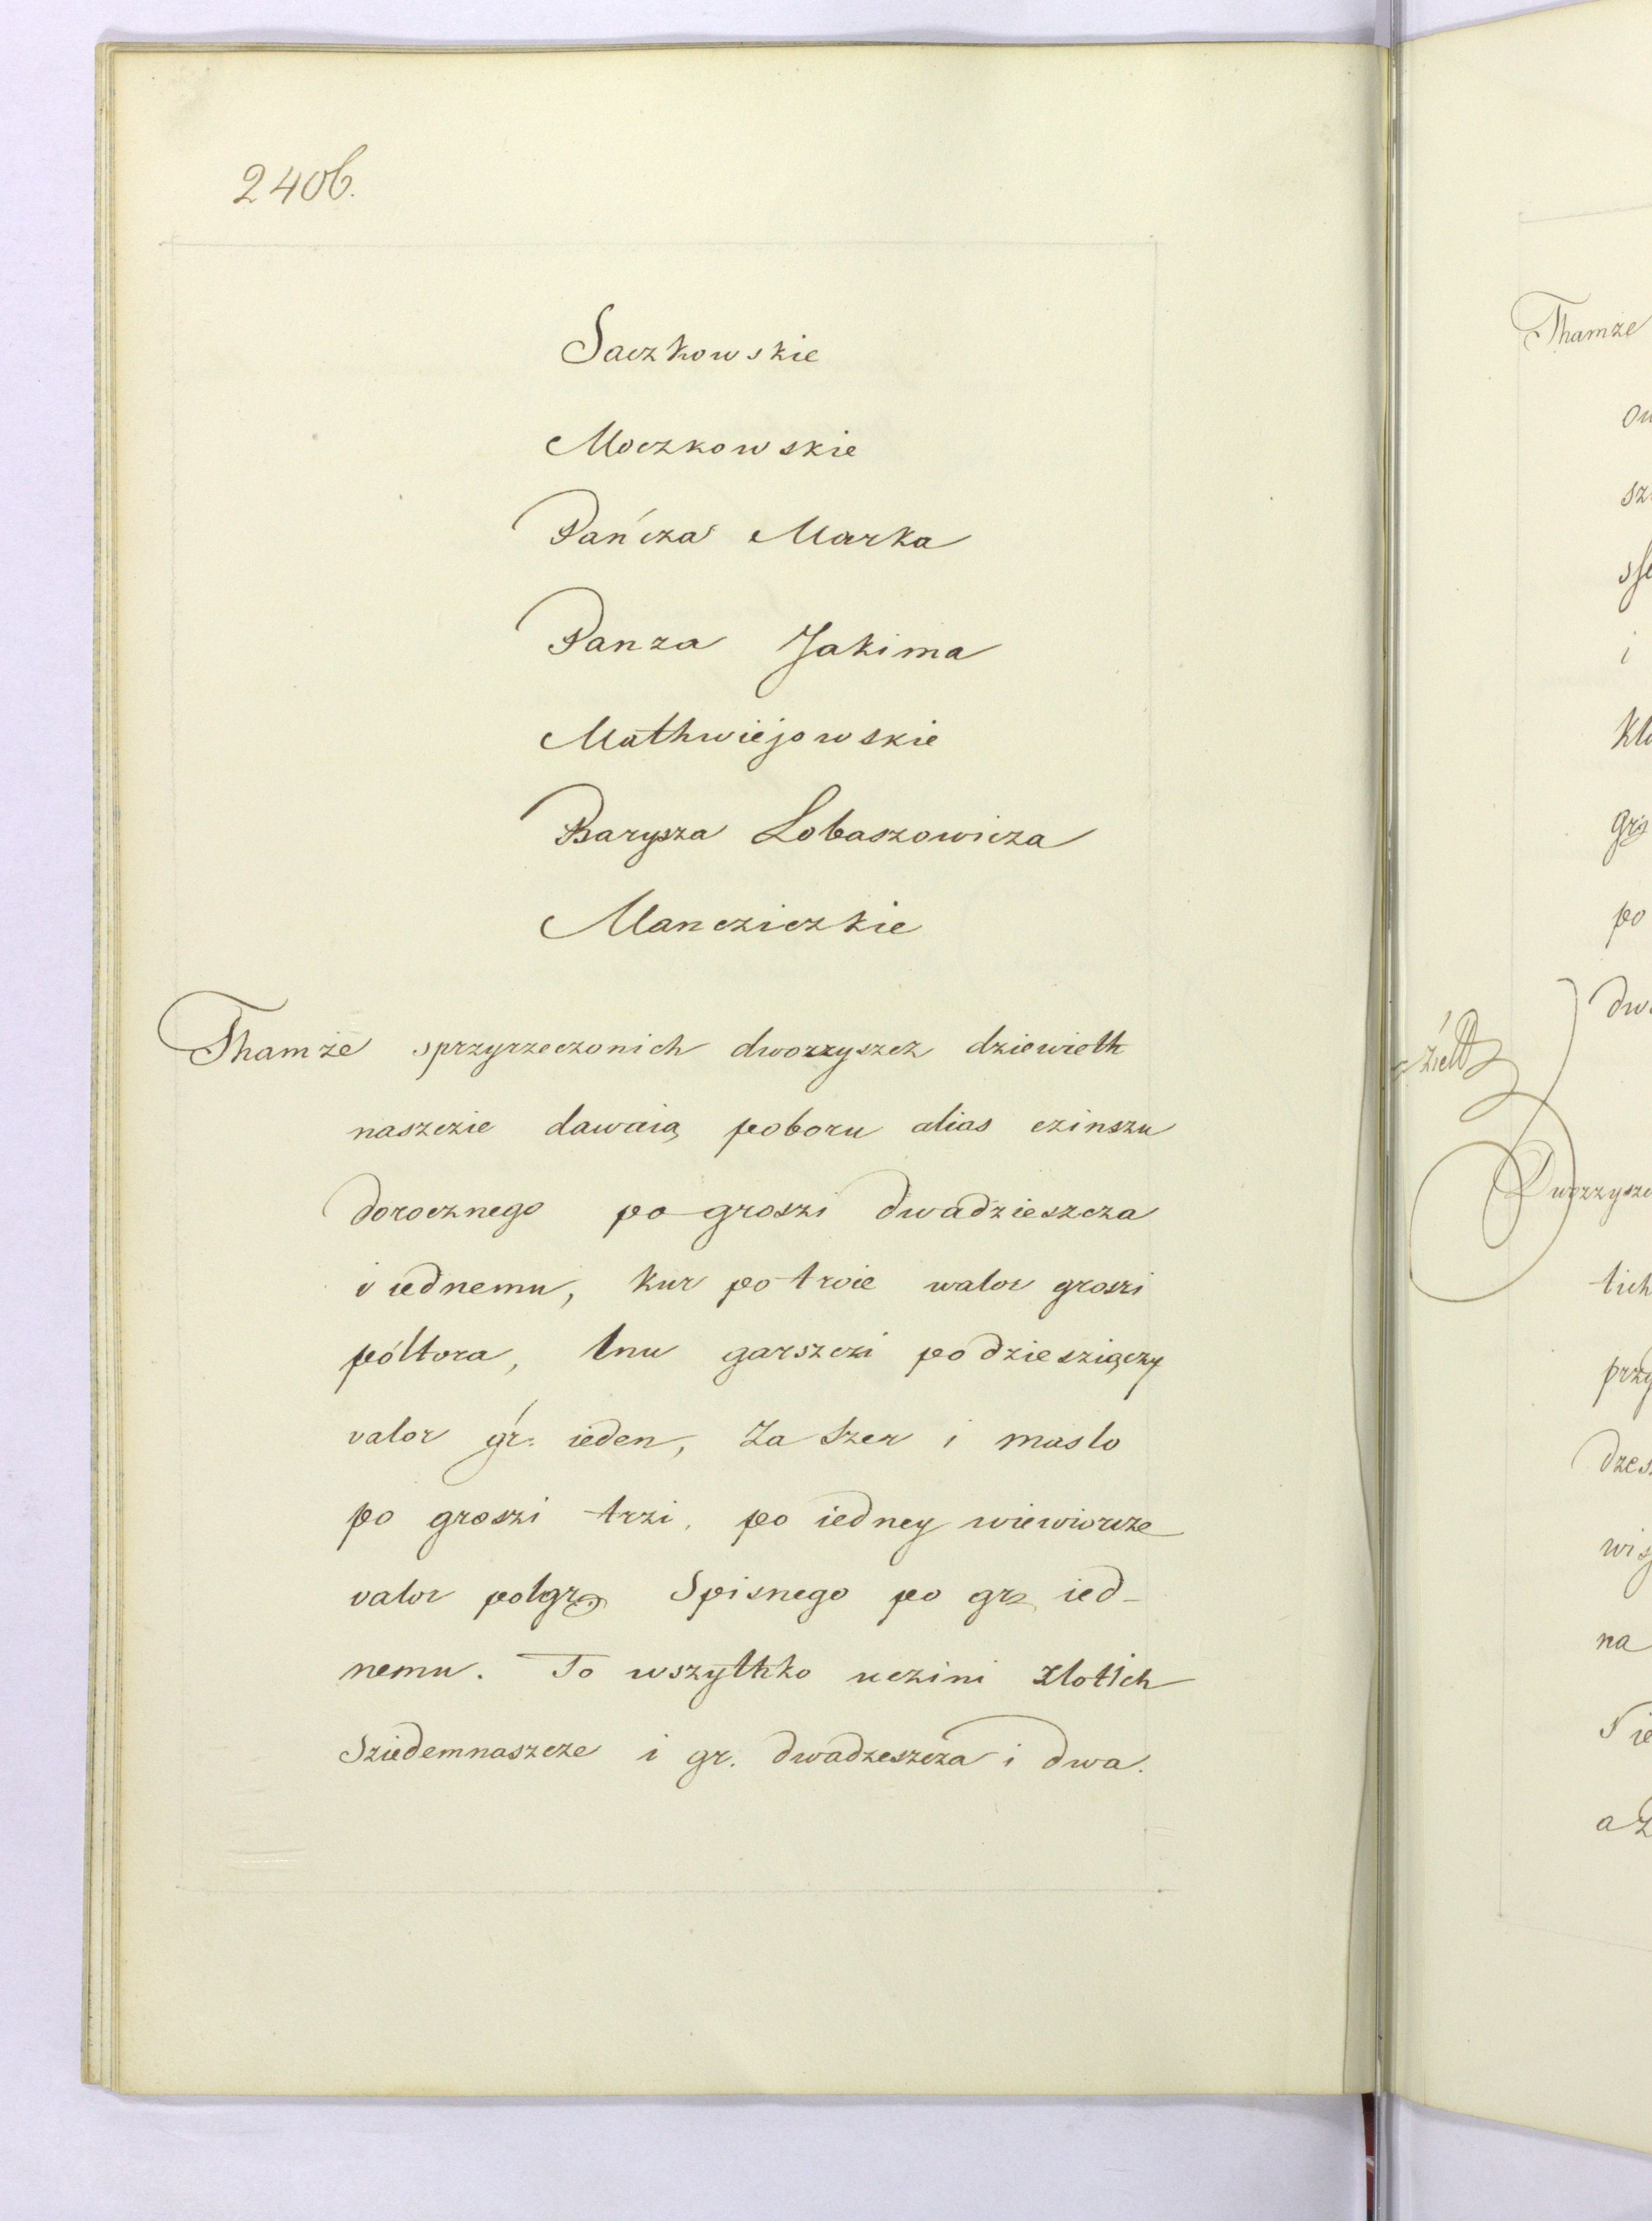 240b.
Saczkowskie
Moczkowskie
Pańcza Marka
Panza Jakima
Mathwiejowskie
Barysza Lobaszowicza
Mancziczkie
Thamże sprzyrzeczonich dworzyszcz dziewieth
naszczie dawaią poboru alias czinszu
dorocznego po groszi dwadzieszcza
i iednemu, kur po troie walor groszi
póltora, lnu garszczi po dziesziączy
valor gr. ieden, Za Szer i maslo
po groszi trzi, po iedney wiewiorcze
valor polgr. Spisnego po gr. ied-
nemu. To wszythko uczini zlotich
Sziedemnaszcze i gr. dwadzeszcza i dwa.
Thamze
szi
i
po
Dworzyszcz
tich
przy
na